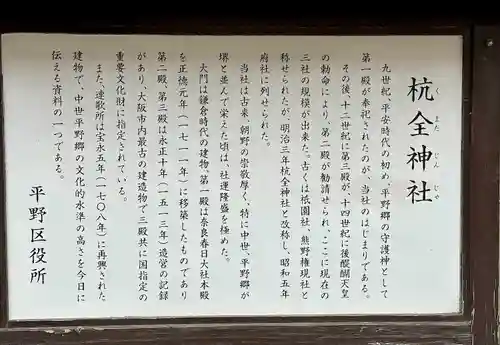 杭全神社
くまたじんじゃ
九世紀、平安時代の初め、平野郷の守護神として
第一殿が奉祀されたのが、当社のはじまりである。
その後、十二世紀に第三殿が、十四世紀に後醍醐天皇
の勅命により、第二殿が勧請せられ、ここに現在の
三社の規模が出来た。古くは祇園社、熊野権現社と
称せられたが、明治三年杭全神社と改称し、昭和五年
府社に列せられた。
当社は古来、朝野の崇敬厚く、特に中世、平野郷が
堺と並んで栄えた頃は、社運隆盛を極めた。
大門は鎌倉時代の建物、第一殿は奈良春日大社本殿
を正徳元年（一七一一年）に移築したものであり
第二殿、第三殿は永正十年（一五一三年）造営の記録
があり、大阪市内最古の建造物で三殿共に国指定の
重要文化財に指定されている。
また、連歌所は宝永五年（一七〇八年）に再興された
建物で、中世平野郷の文化的水準の高さを今日に
伝える資料の一つである。
平野区役所